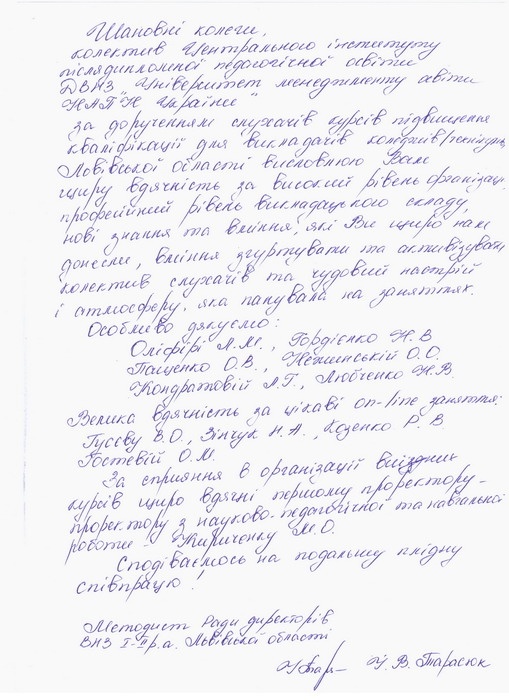 Шановні колеги,
колектив Центрального інституту
післядипломної педагогічної освіти
ДВНЗ „Університет менеджменту освіти
НАПН України"
за дорученням слухачів курсів підвищення
кваліфікації для викладачів коледжів/технікумів
Львівської області висловлюю Вам
щиру вдячність за високий рівень організації,
професійний рівень викладацького складу,
нові знання та вміння, які Ви щиро нам
донесли, вміння згуртувати та активізувати
колектив слухачів та чудовий настрій
і атмосферу, яка панувала на заняттях.
Особливо дякуємо:
Оліфірі Л.М., Гордієнко Н.В
Пащенко О.В., Нежинській О.О.
Кондратовій Л.Г., Любченко Н.В.
Велика вдячність за цікаві on-line заняття:
Гусєву В.О., Зінчук Н.А., Козенко Р.В
Гостевій О.М.
За сприяння в організації виїздних
курсів щиро вдячні першому проректору-
проректору з науково-педагогічної та навчальної
роботи - Кириченку М.О.
Сподіваємось на подальшу плідну
співпрацю!
Методист Ради директорів
ВНЗ І-ІІ р.а. Львівської області
У.В. Тарасюк